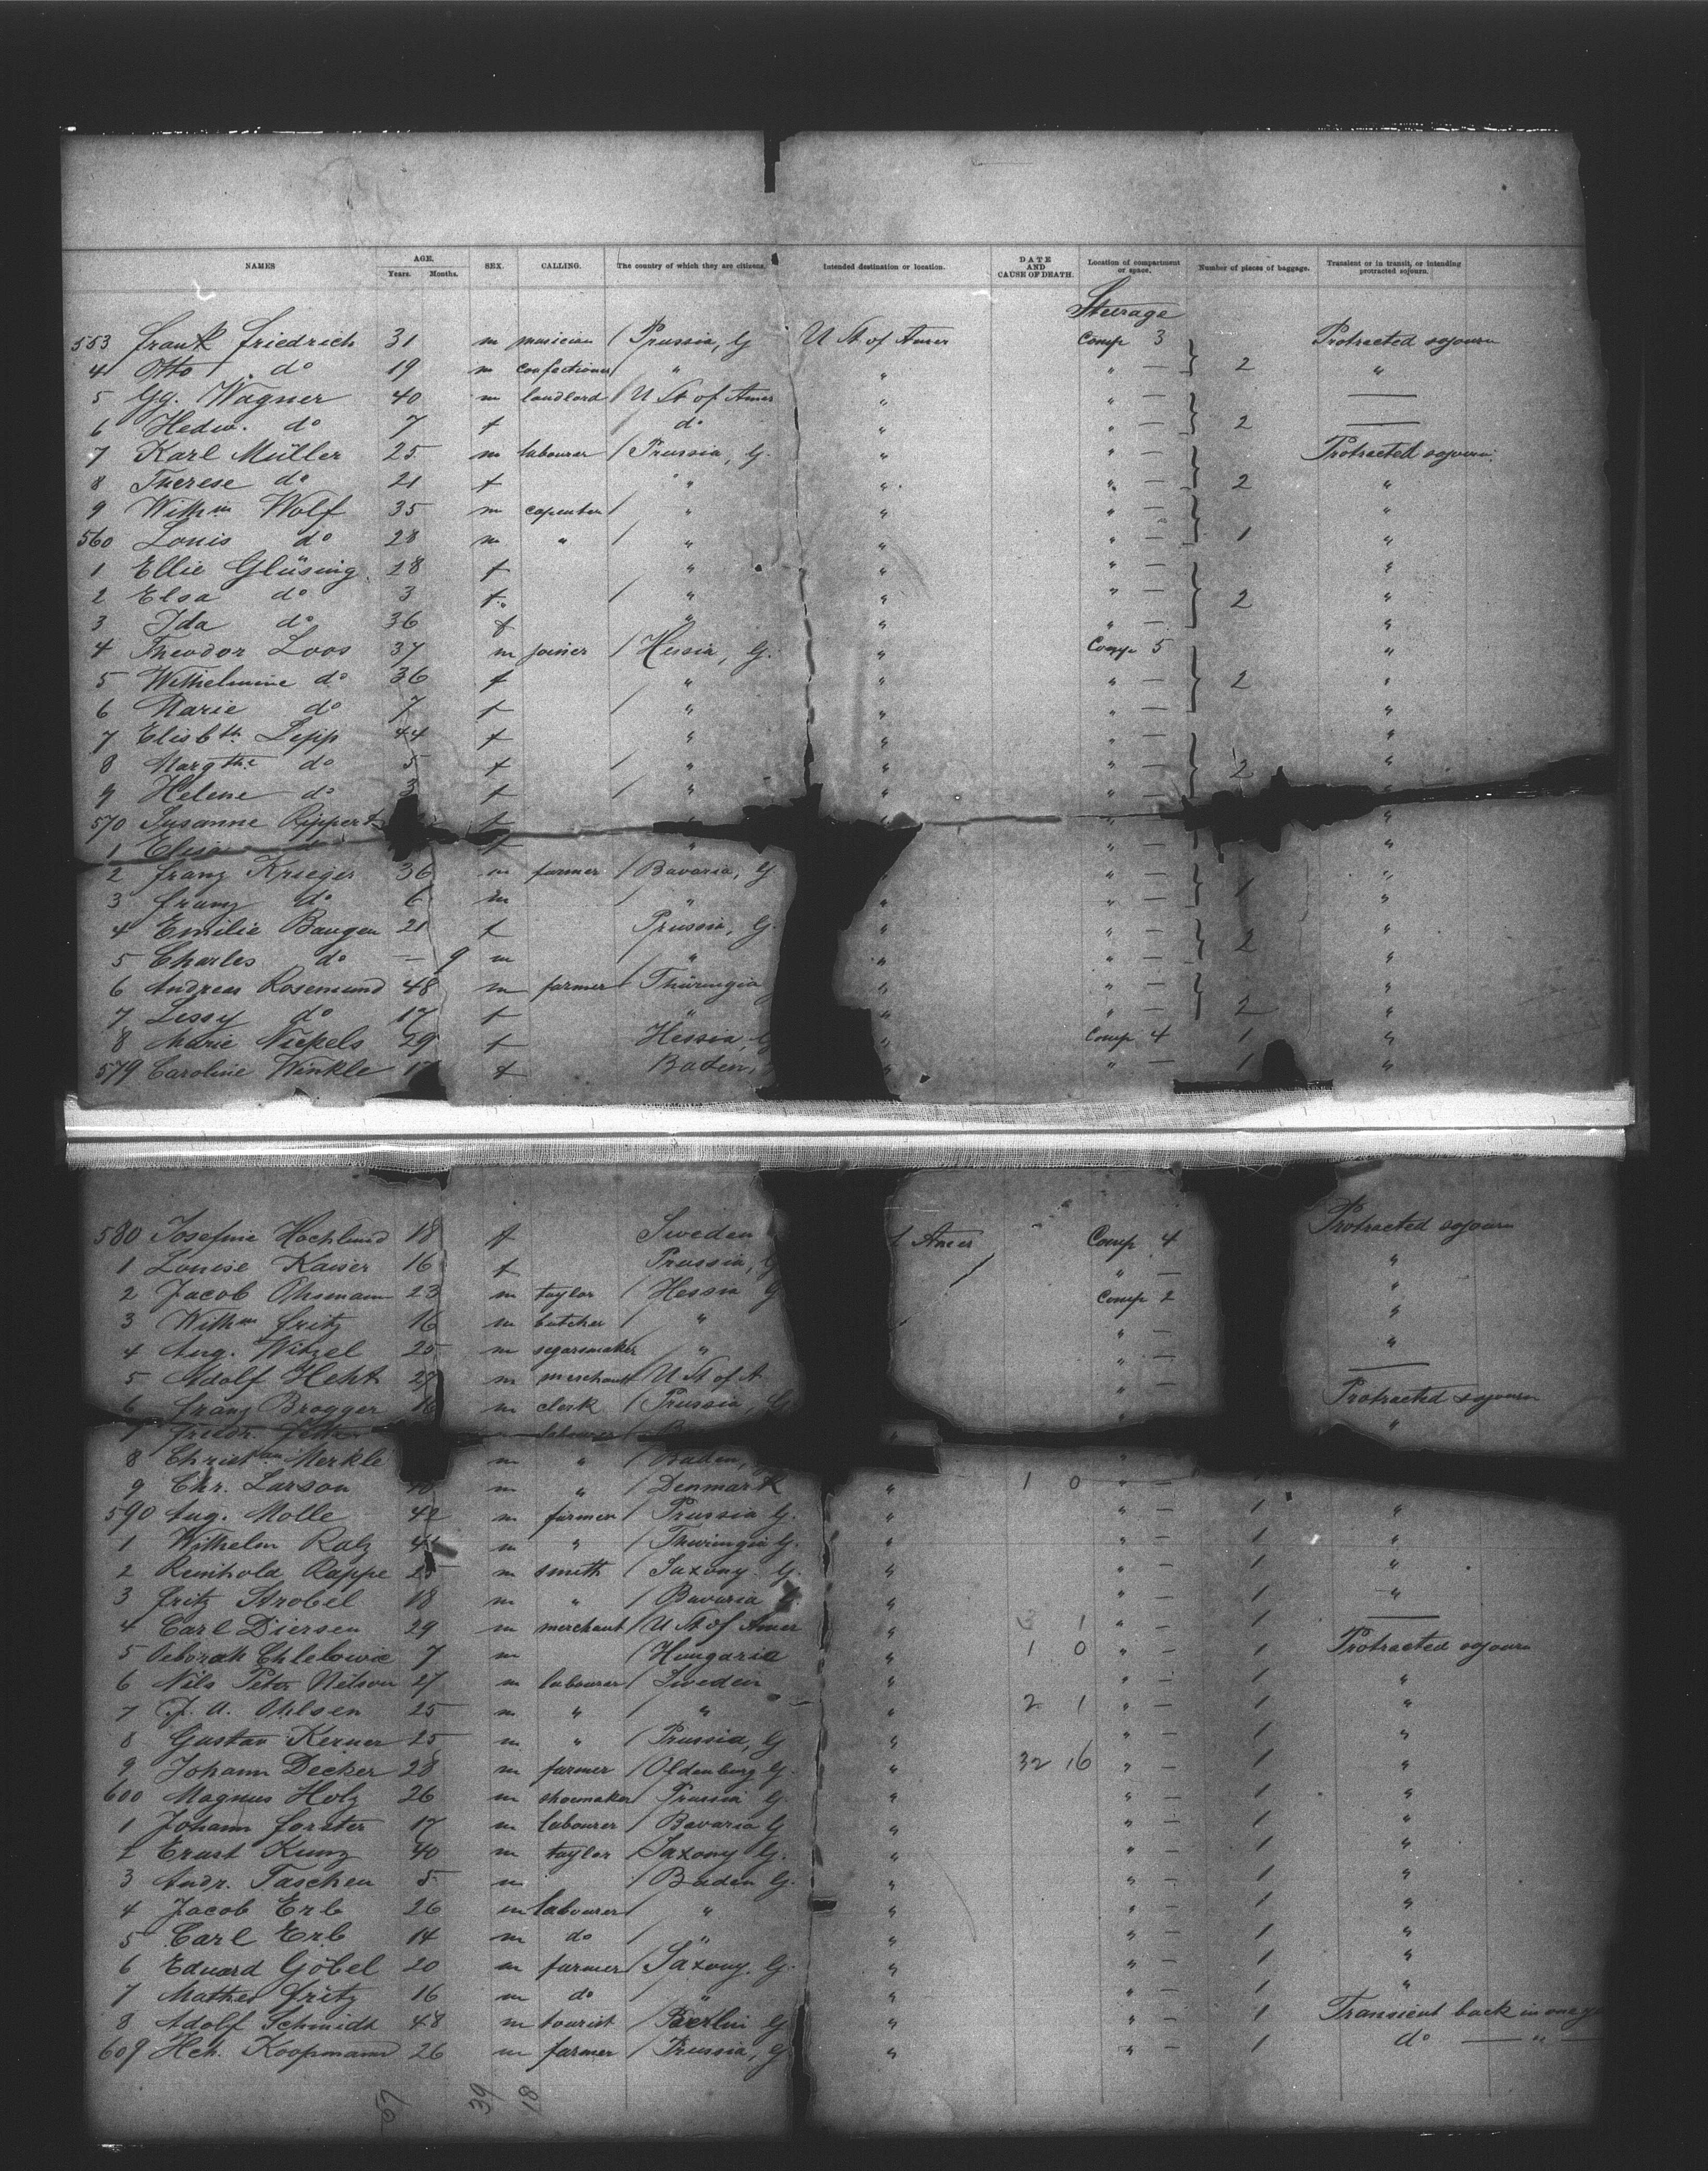 NAMES AGE. Years. Months. SEX. CALLING. The country of which they are citizens. Intended destination or location. DATE AND CAUSE OF DEATH. Location of compartment or space. Number of pieces of baggage. Transient or in transit, or intending protracted sojourn.
Steerage
553 Frank Friedrich 31 m musician / Prussia, G U St of Amer Comp 3 Protracted sojourn
4 Otto do 19 m confectioner / " " " — 2 "
5 Gg. Wagner 40 m landlord / U St of Amer " " — —
6 Hedw. do 7 f do " " — 2 —
7 Karl Müller 25 m labourer / Prussia, G. " " — Protracted sojourn.
8 Therese do 21 f " " " — 2 "
9 Wilhm Wolf 35 m capenter / " " " — "
560 Louis do 28 m " / " " " — 1 "
1 Ellie Glüsing 28 f " " " — "
2 Elsa do 3 f. / " " " — 2 "
3 Ida do 36 f " " " — "
4 Theodor Loos 37 m joiner / Hessia, G. " Comp 5 "
5 Wilhelmine do 36 f " " " — 2 "
6 Marie do 7 f / " " " — "
7 Elisbth. Lepp 44 f " " " — "
8 Margthe do 5 f / " " " — 2 "
9 Helene do 3 f / " " " — "
570 Susanne Rippert f " "
1 Elisa f " " — "
2 Franz Krieger 36 m farmer / Bavaria, G " — "
3 Franz do 6 m / " " " — 1 "
4 Emilie Bangen 21 f Prussia, G. " " — "
5 Charles do — 9 m / " " " — 2 "
6 Andreas Rosemund 48 m farmer / Thüringia " " — "
7 Lissy do 17 f " " " — 2 "
8 Marie Niepels 29 f Hessia, G Comp 4 1 "
579 Caroline Winkle 17 f Baden, " " — 1 "
580 Josefine Hochlund 18 f Sweden Amer Comp 4 Protracted sojourn
1 Louise Kaiser 16 f Prussia, G / " — "
2 Jacob Ohsmann 23 m taylor / Hessia G Comp 2 "
3 Wilhm Fritz 16 m butcher / " " — "
4 Aug. Witzel 25 m segarsmaker " " — "
5 Adolf Heht 27 m merchant U St of A " — —
6 Franz Brogger 16 m clerk / Prussia, G " Protracted sojourn
7 Friedr. labourer / "
8 Christian Merkle m " / Baden,
9 Chr. Larson m " / Denmark " 1 0 " —
590 Aug. Molle 42 m farmer / Prussia G. " " — 1 "
1 Wilhelm Ralz m " / Thuringia G. " " — 1 "
2 Reinhold Rappe 25 m smith / Saxony. G. " " — 1 "
3 Fritz Strobel 18 m " / Bavaria G. " " — 1 "
4 Carl Diersen 29 m merchant / U St of Amer " 3 1 " — 1 —
5 Deborah Chlebowic 7 m / Hungaria " 1 0 " — 1 Protracted sojourn
6 Nils Peter Nilson 27 m labourer / Sweden " " — 1 "
7 J. A. Ohlsen 25 m " / " " 2 1 " — 1 "
8 Gustav Kerner 25 m " / Prussia, G " " — 1 "
9 Johann Decker 28 m farmer / Oldenburg G. " 32 16 " — 1 "
600 Magnus Holz 26 m shoemaker / Prussia G. " " — 1 "
1 Johann Forster 17 m labourer / Bavaria G " " — 1 "
2 Ernst Kunz 40 m taylor / Saxony G. " " — 1 "
3 Andr. Taschen 5 m / Baden G. " " — 1 "
4 Jacob Erb 26 m labourer / " " " — 1 "
5 Carl Erb 14 m do / " " " — 1 "
6 Eduard Göbel 20 m farmer / Saxony. G. " " — 1 "
7 Mathes Fritz 16 m do / " " " — 1 "
8 Adolf Schmidt 48 m tourist / Berlin G " " — 1 Transient back in one
609 Hch. Koopmann 26 m farmer / Prussia, G " " — 1 do — " —
57 39 18